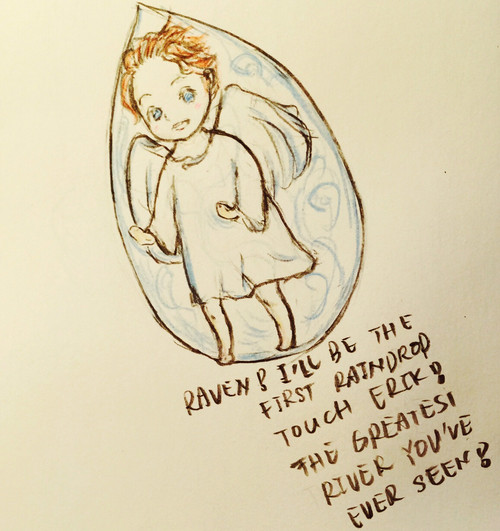 RAVEN! I'LL BE THE
FIRST RAINDROP
TOUCH ERIK!
THE GREATEST
RIVER YOU'VE
EVER SEEN!